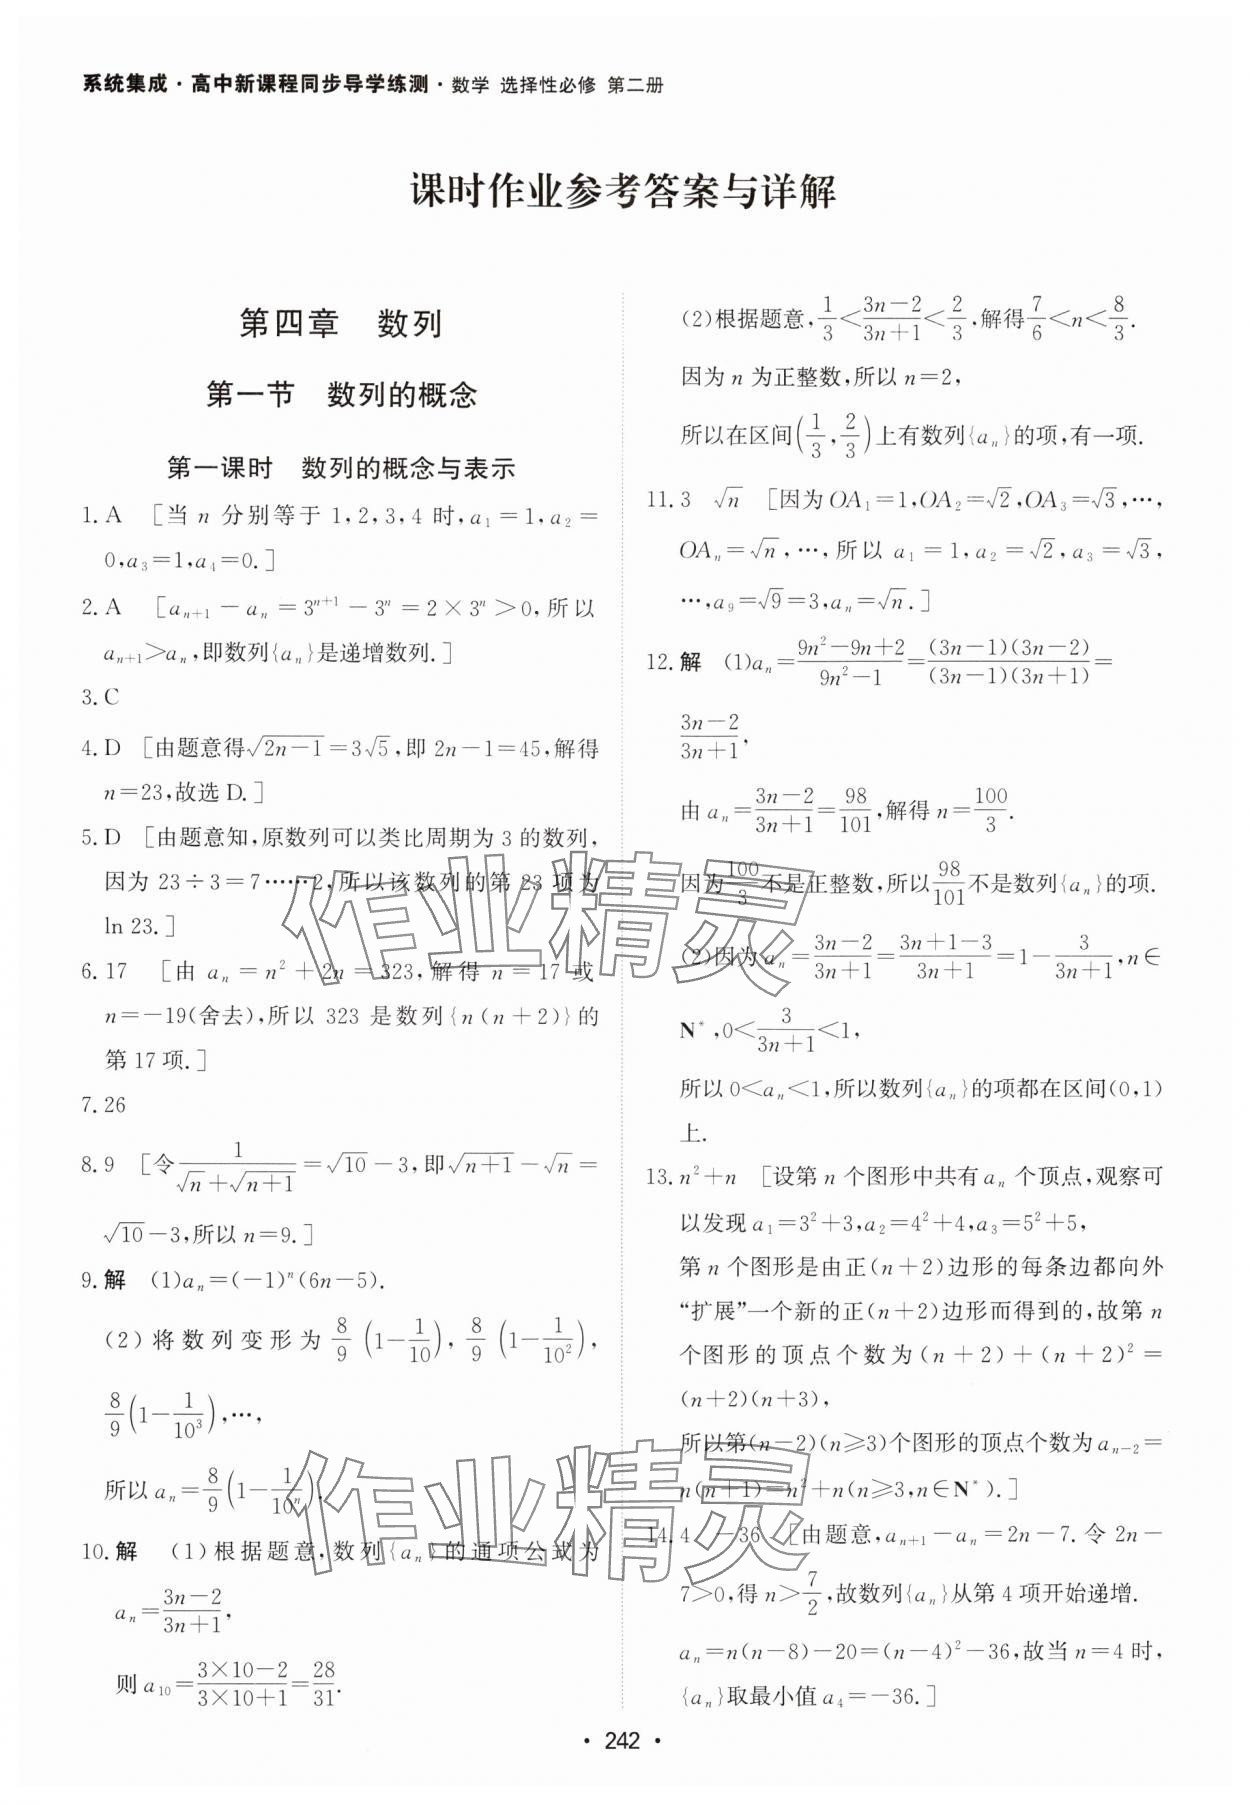 系统集成·高中新课程同步导学练测·数学 选择性必修 第二册
课时作业参考答案与详解
第四章 数列
第一节 数列的概念
第一课时 数列的概念与表示
1. A [当 n 分别等于 1,2,3,4 时,a₁=1,a₂=
0,a₃=1,a₄=0.]
2. A [aₙ₊₁-aₙ=3ⁿ⁺¹-3ⁿ=2×3ⁿ>0,所以
aₙ₊₁>aₙ,即数列{aₙ}是递增数列.]
3. C
4. D [由题意得√(2n-1)=3√5,即 2n-1=45,解得
n=23,故选 D.]
5. D [由题意知,原数列可以类比周期为 3 的数列,
因为 23÷3=7……2,所以该数列的第 23 项为
ln 23.]
6. 17 [由 aₙ=n²+2n=323,解得 n=17 或
n=-19(舍去),所以 323 是数列{n(n+2)}的
第 17 项.]
7. 26
8. 9 [令1/(√n+√(n+1))=√10-3,即√(n+1)-√n=
√10-3,所以 n=9.]
9. 解 (1)aₙ=(-1)ⁿ(6n-5).
(2)将数列变形为 8/9(1-1/10), 8/9(1-1/10²),
8/9(1-1/10³),…,
所以 aₙ=8/9(1-1/10ⁿ).
10. 解 (1)根据题意,数列{aₙ}的通项公式为
aₙ=(3n-2)/(3n+1),
则 a₁₀=(3×10-2)/(3×10+1)=28/31.
(2)根据题意,1/3<(3n-2)/(3n+1)<2/3,解得7/6<n<8/3.
因为 n 为正整数,所以 n=2,
所以在区间(1/3,2/3)上有数列{aₙ}的项,有一项.
11. 3 √n [因为 OA₁=1,OA₂=√2,OA₃=√3,…,
OAₙ=√n,…,所以 a₁=1,a₂=√2,a₃=√3,
…,a₉=√9=3,aₙ=√n.]
12. 解 (1)aₙ=(9n²-9n+2)/(9n²-1)=(3n-1)(3n-2)/(3n-1)(3n+1)=
(3n-2)/(3n+1),
由 aₙ=(3n-2)/(3n+1)=98/101,解得 n=100/3.
因为100/3不是正整数,所以98/101不是数列{aₙ}的项.
(2)因为 aₙ=(3n-2)/(3n+1)=(3n+1-3)/(3n+1)=1-3/(3n+1),n∈
N*,0<3/(3n+1)<1,
所以 0<aₙ<1,所以数列{aₙ}的项都在区间(0,1)
上.
13. n²+n [设第 n 个图形中共有 aₙ 个顶点,观察可
以发现 a₁=3²+3,a₂=4²+4,a₃=5²+5,
第 n 个图形是由正(n+2)边形的每条边都向外
“扩展”一个新的正(n+2)边形而得到的,故第 n
个图形的顶点个数为(n+2)+(n+2)²=
(n+2)(n+3),
所以第(n-2)(n≥3)个图形的顶点个数为 aₙ₋₂=
n(n+1)=n²+n(n≥3,n∈N*).]
14. 4 -36 [由题意,aₙ₊₁-aₙ=2n-7.令 2n-
7>0,得 n>7/2,故数列{aₙ}从第 4 项开始递增.
aₙ=n(n-8)-20=(n-4)²-36,故当 n=4 时,
{aₙ}取最小值 a₄=-36.]
· 242 ·
作业精灵
作业精灵